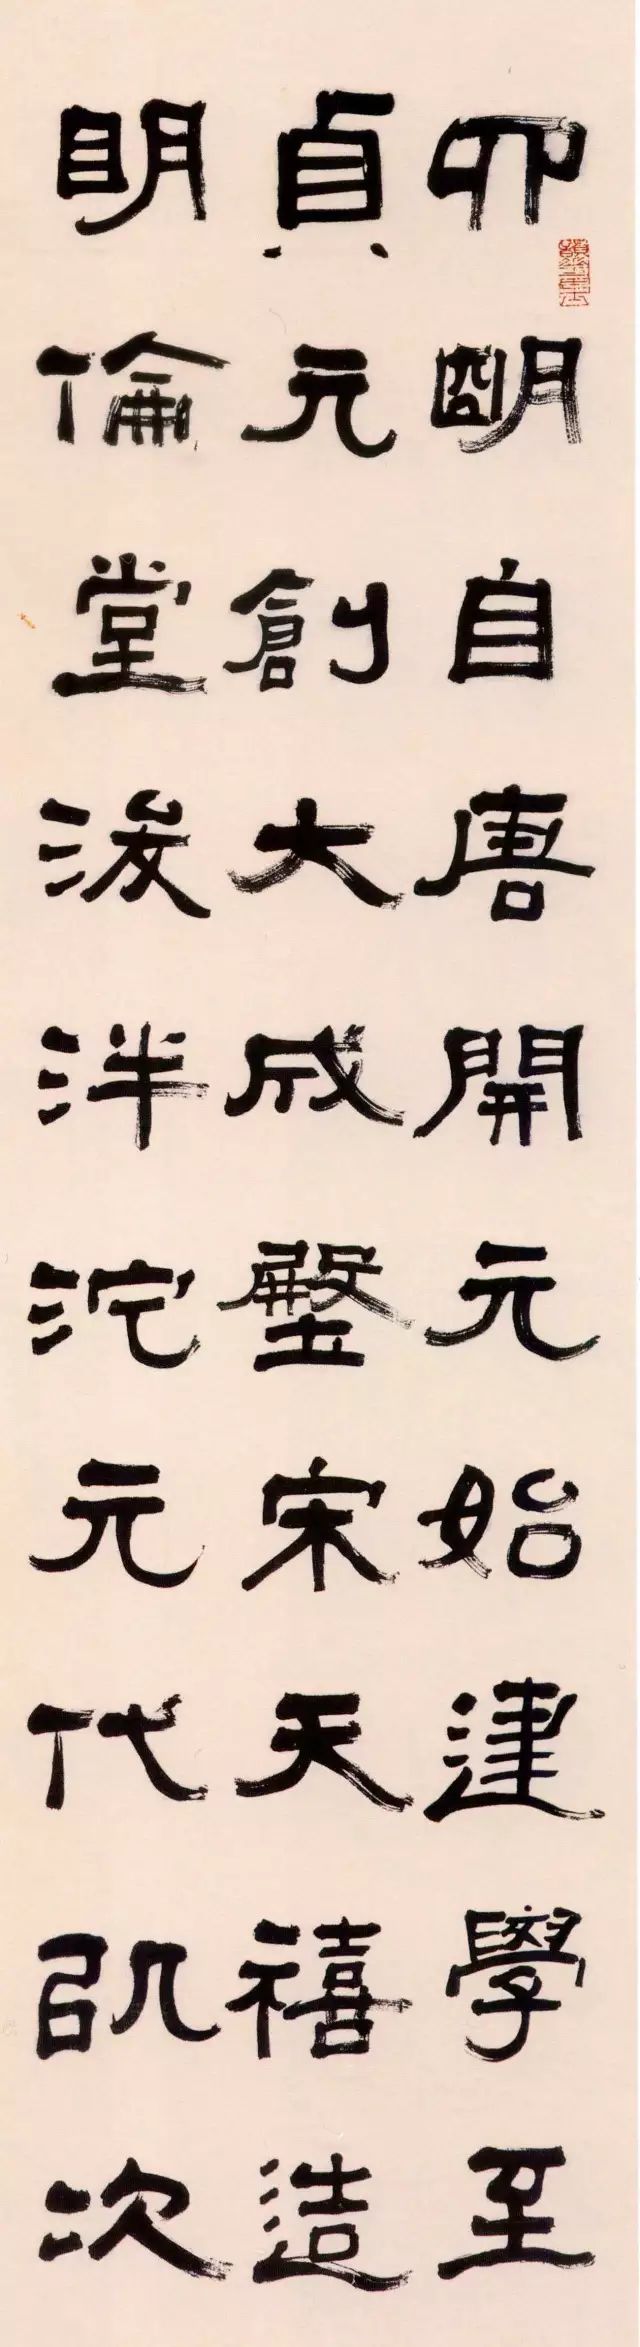 四朙自唐開元始建學至
貞元創大成壂宋天禧造
眀倫堂浚泮沱元代以次